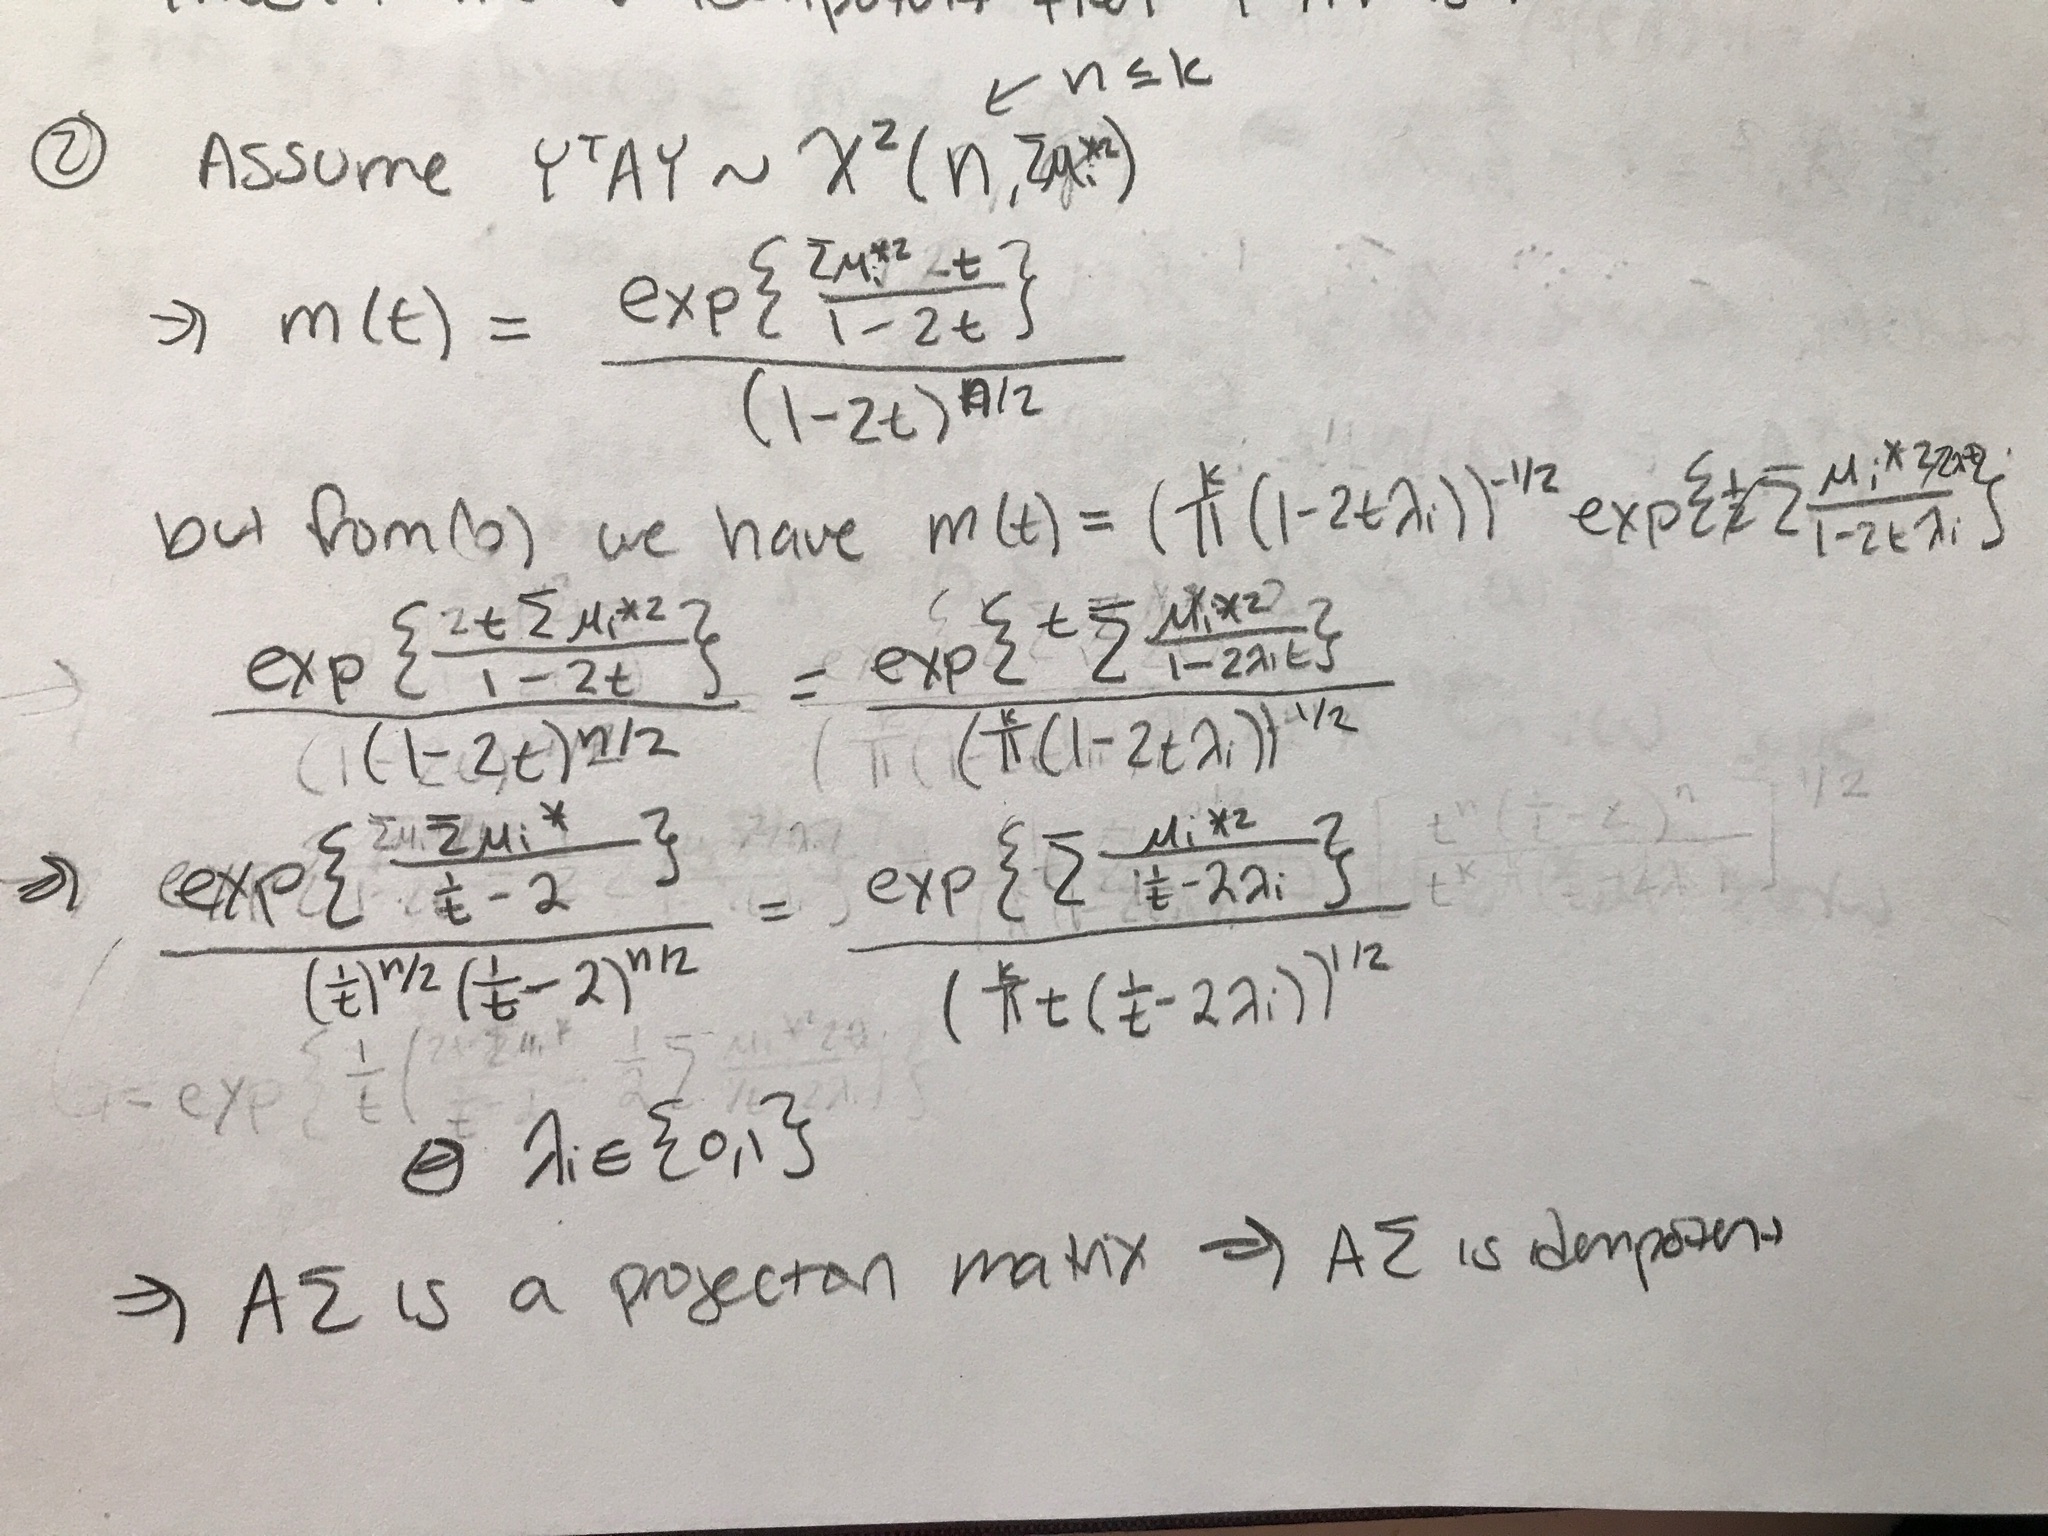 ← n ≤ k
② Assume YᵀAY ~ χ²(n, Σμᵢ*²)
⇒ m(t) = exp{ Σμᵢ*² t / (1-2t) } / (1-2t)^(n/2)
but from (b) we have m(t) = (∏ᵏ(1-2tλᵢ))^(-1/2) exp{ ½ Σ μᵢ*² 2λᵢt / (1-2tλᵢ) }
exp{ 2t Σμᵢ*² / (1-2t) } / (1-2t)^(n/2) = exp{ t Σ μᵢ*² / (1-2λᵢt) } / (∏ᵏ(1-2tλᵢ))^(1/2)
⇒ exp{ Σμᵢ* / (1/t - 2) } / ((1/t)^(n/2) (1/t - 2)^(n/2)) = exp{ Σ μᵢ*² / (1/t - 2λᵢ) } / (∏ᵏ t(1/t - 2λᵢ))^(1/2)
λᵢ ∈ {0,1}
⇒ AΣ is a projecton matrix ⇒ AΣ is idempotent